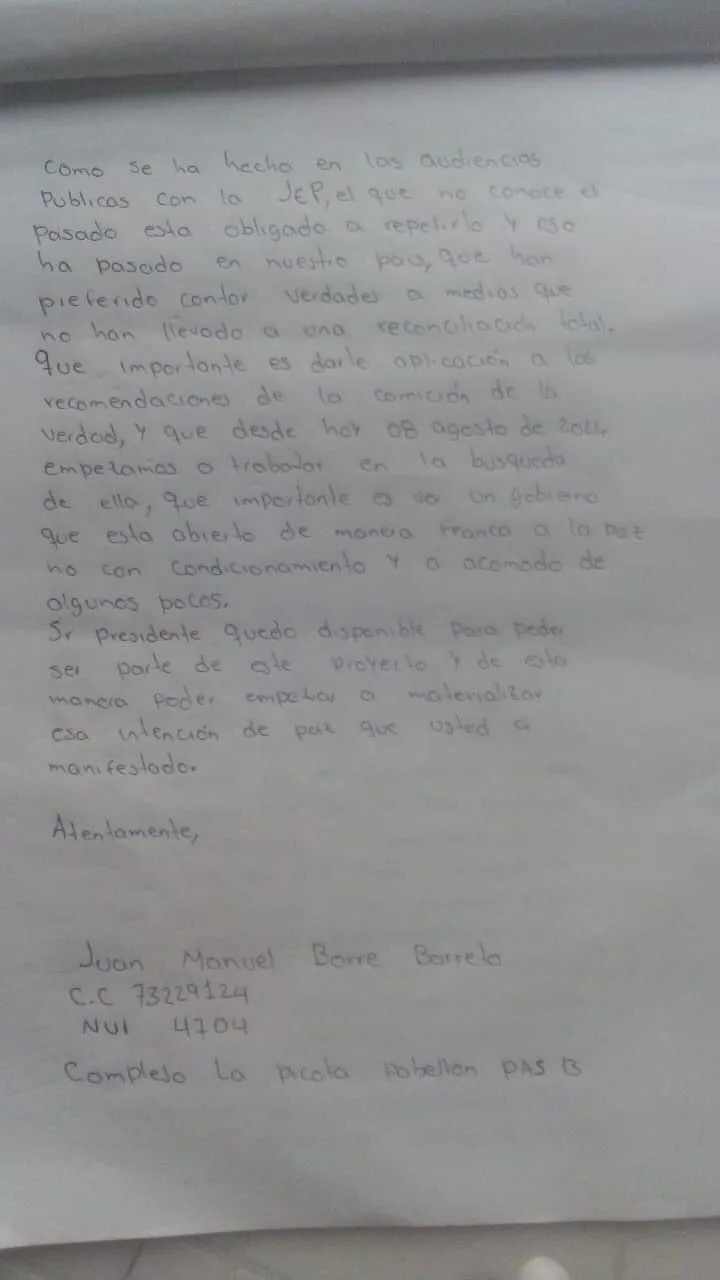 como se ha hecho en las audiencias
Publicas con la JEP, el que no conoce el
pasado esta obligado a repetirlo y eso
ha pasado en nuestro pais, que han
preferido contar verdades a medias que
no han llevado a una reconciliación total.
Que importante es darle aplicación a las
recomendaciones de la comición de la
verdad, y que desde hoy 08 agosto de
empezamos a trabajar en la busqueda
de ella, que importante es ver un gobierno
que esta abierto de manera franca a la paz
no con condicionamiento y a acomodo de
algunos pocos.
Sr presidente quedo disponible para poder
ser parte de este proyecto y de esta
manera poder empezar a materializar
esa intención de paz que usted a
manifestado.
Atentamente,
Juan Manuel Borre Barreto
C.C 73229124
NUI 4704
Complejo La picota pabellon PAS B